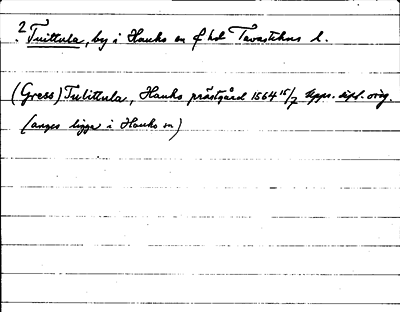 ? Tuittula, by i Hauho sn o hd Tavastehus l.
(Gress) Tulittula, Hauho prästgård 1564 15/7 Upps. dipl. orig.
(anges ligga i Hauho sn)